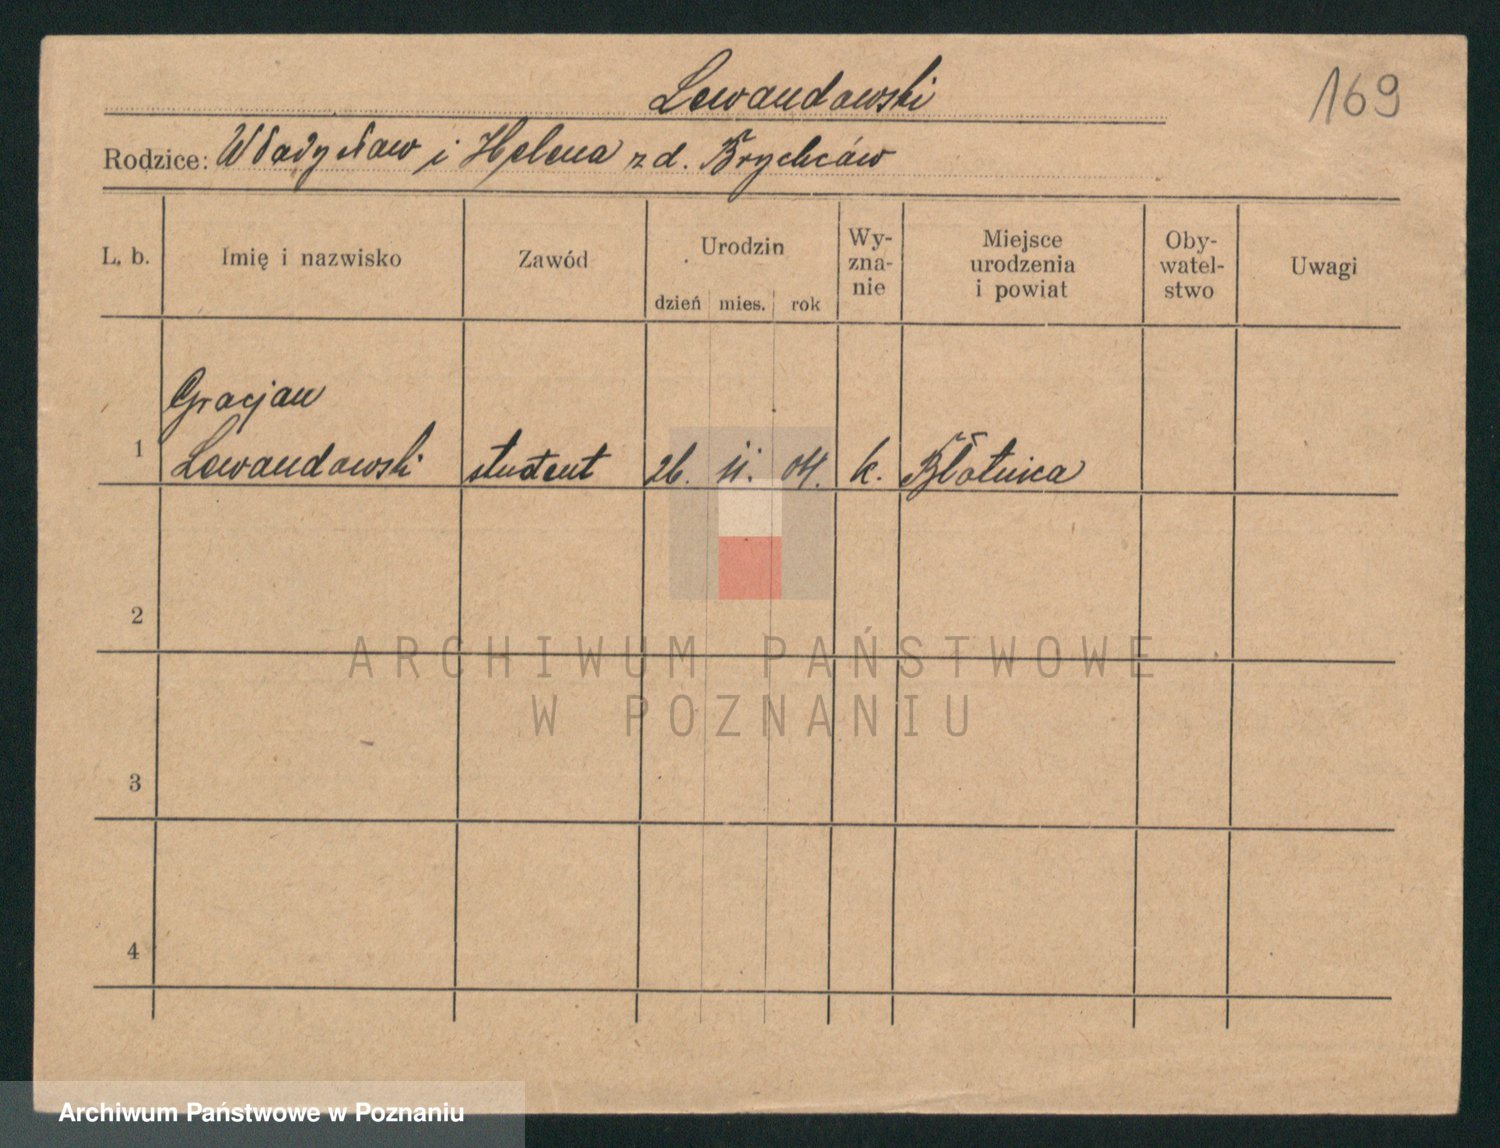 Lewandowski
169
Rodzice: Władysław i Helena z d. Brychców
L. b.
Imię i nazwisko
Zawód
Urodzin
dzień mies. rok
Wy-
zna-
nie
Miejsce
urodzenia
i powiat
Oby-
watel-
stwo
Uwagi
1
Gracjan
Lewandowski
student
26. 11. 04.
k.
Błotnica
2
3
4
ARCHIWUM PAŃSTWOWE
W POZNANIU
Archiwum Państwowe w Poznaniu